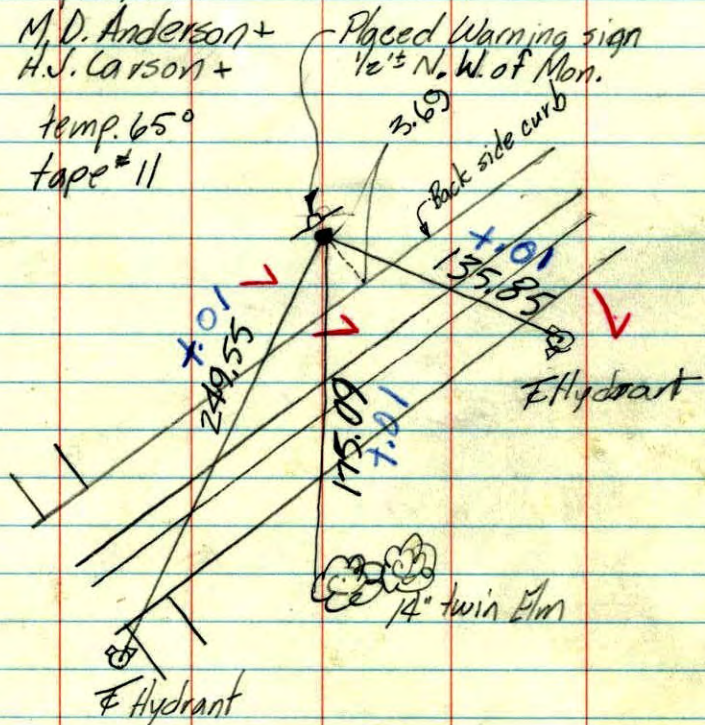 M.D. Anderson +
H.J. Carson +
temp. 65°
tape #11
Placed Warning sign
1/2'± N.W. of Mon.
3.69
Back side curb
+.01
135.85
+.01
249.55
175.09
+.01
℄ Hydrant
14" twin Elm
℄ Hydrant